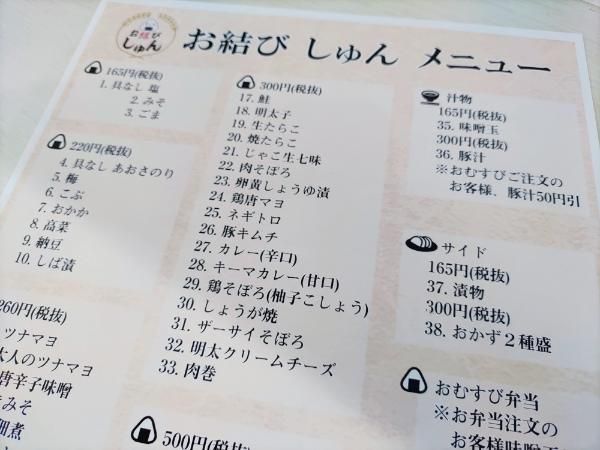 お結び
しゅん
お結び しゅん メニュー
165円(税抜)
1. 具なし 塩
2. みそ
3. ごま
220円(税抜)
4. 具なし あおさのり
5. 梅
6. こぶ
7. おかか
8. 高菜
9. 納豆
10. しば漬
260円(税抜)
ツナマヨ
大人のツナマヨ
唐辛子味噌
みそ
佃煮
300円(税抜)
17. 鮭
18. 明太子
19. 生たらこ
20. 焼たらこ
21. じゃこ生七味
22. 肉そぼろ
23. 卵黄しょうゆ漬
24. 鶏唐マヨ
25. ネギトロ
26. 豚キムチ
27. カレー(辛口)
28. キーマカレー(甘口)
29. 鶏そぼろ(柚子こしょう)
30. しょうが焼
31. ザーサイそぼろ
32. 明太クリームチーズ
33. 肉巻
500円(税抜)
汁物
165円(税抜)
35. 味噌玉
300円(税抜)
36. 豚汁
※おむすびご注文の
お客様、豚汁50円引
サイド
165円(税抜)
37. 漬物
300円(税抜)
38. おかず２種盛
おむすび弁当
※お弁当注文の
お客様味噌玉